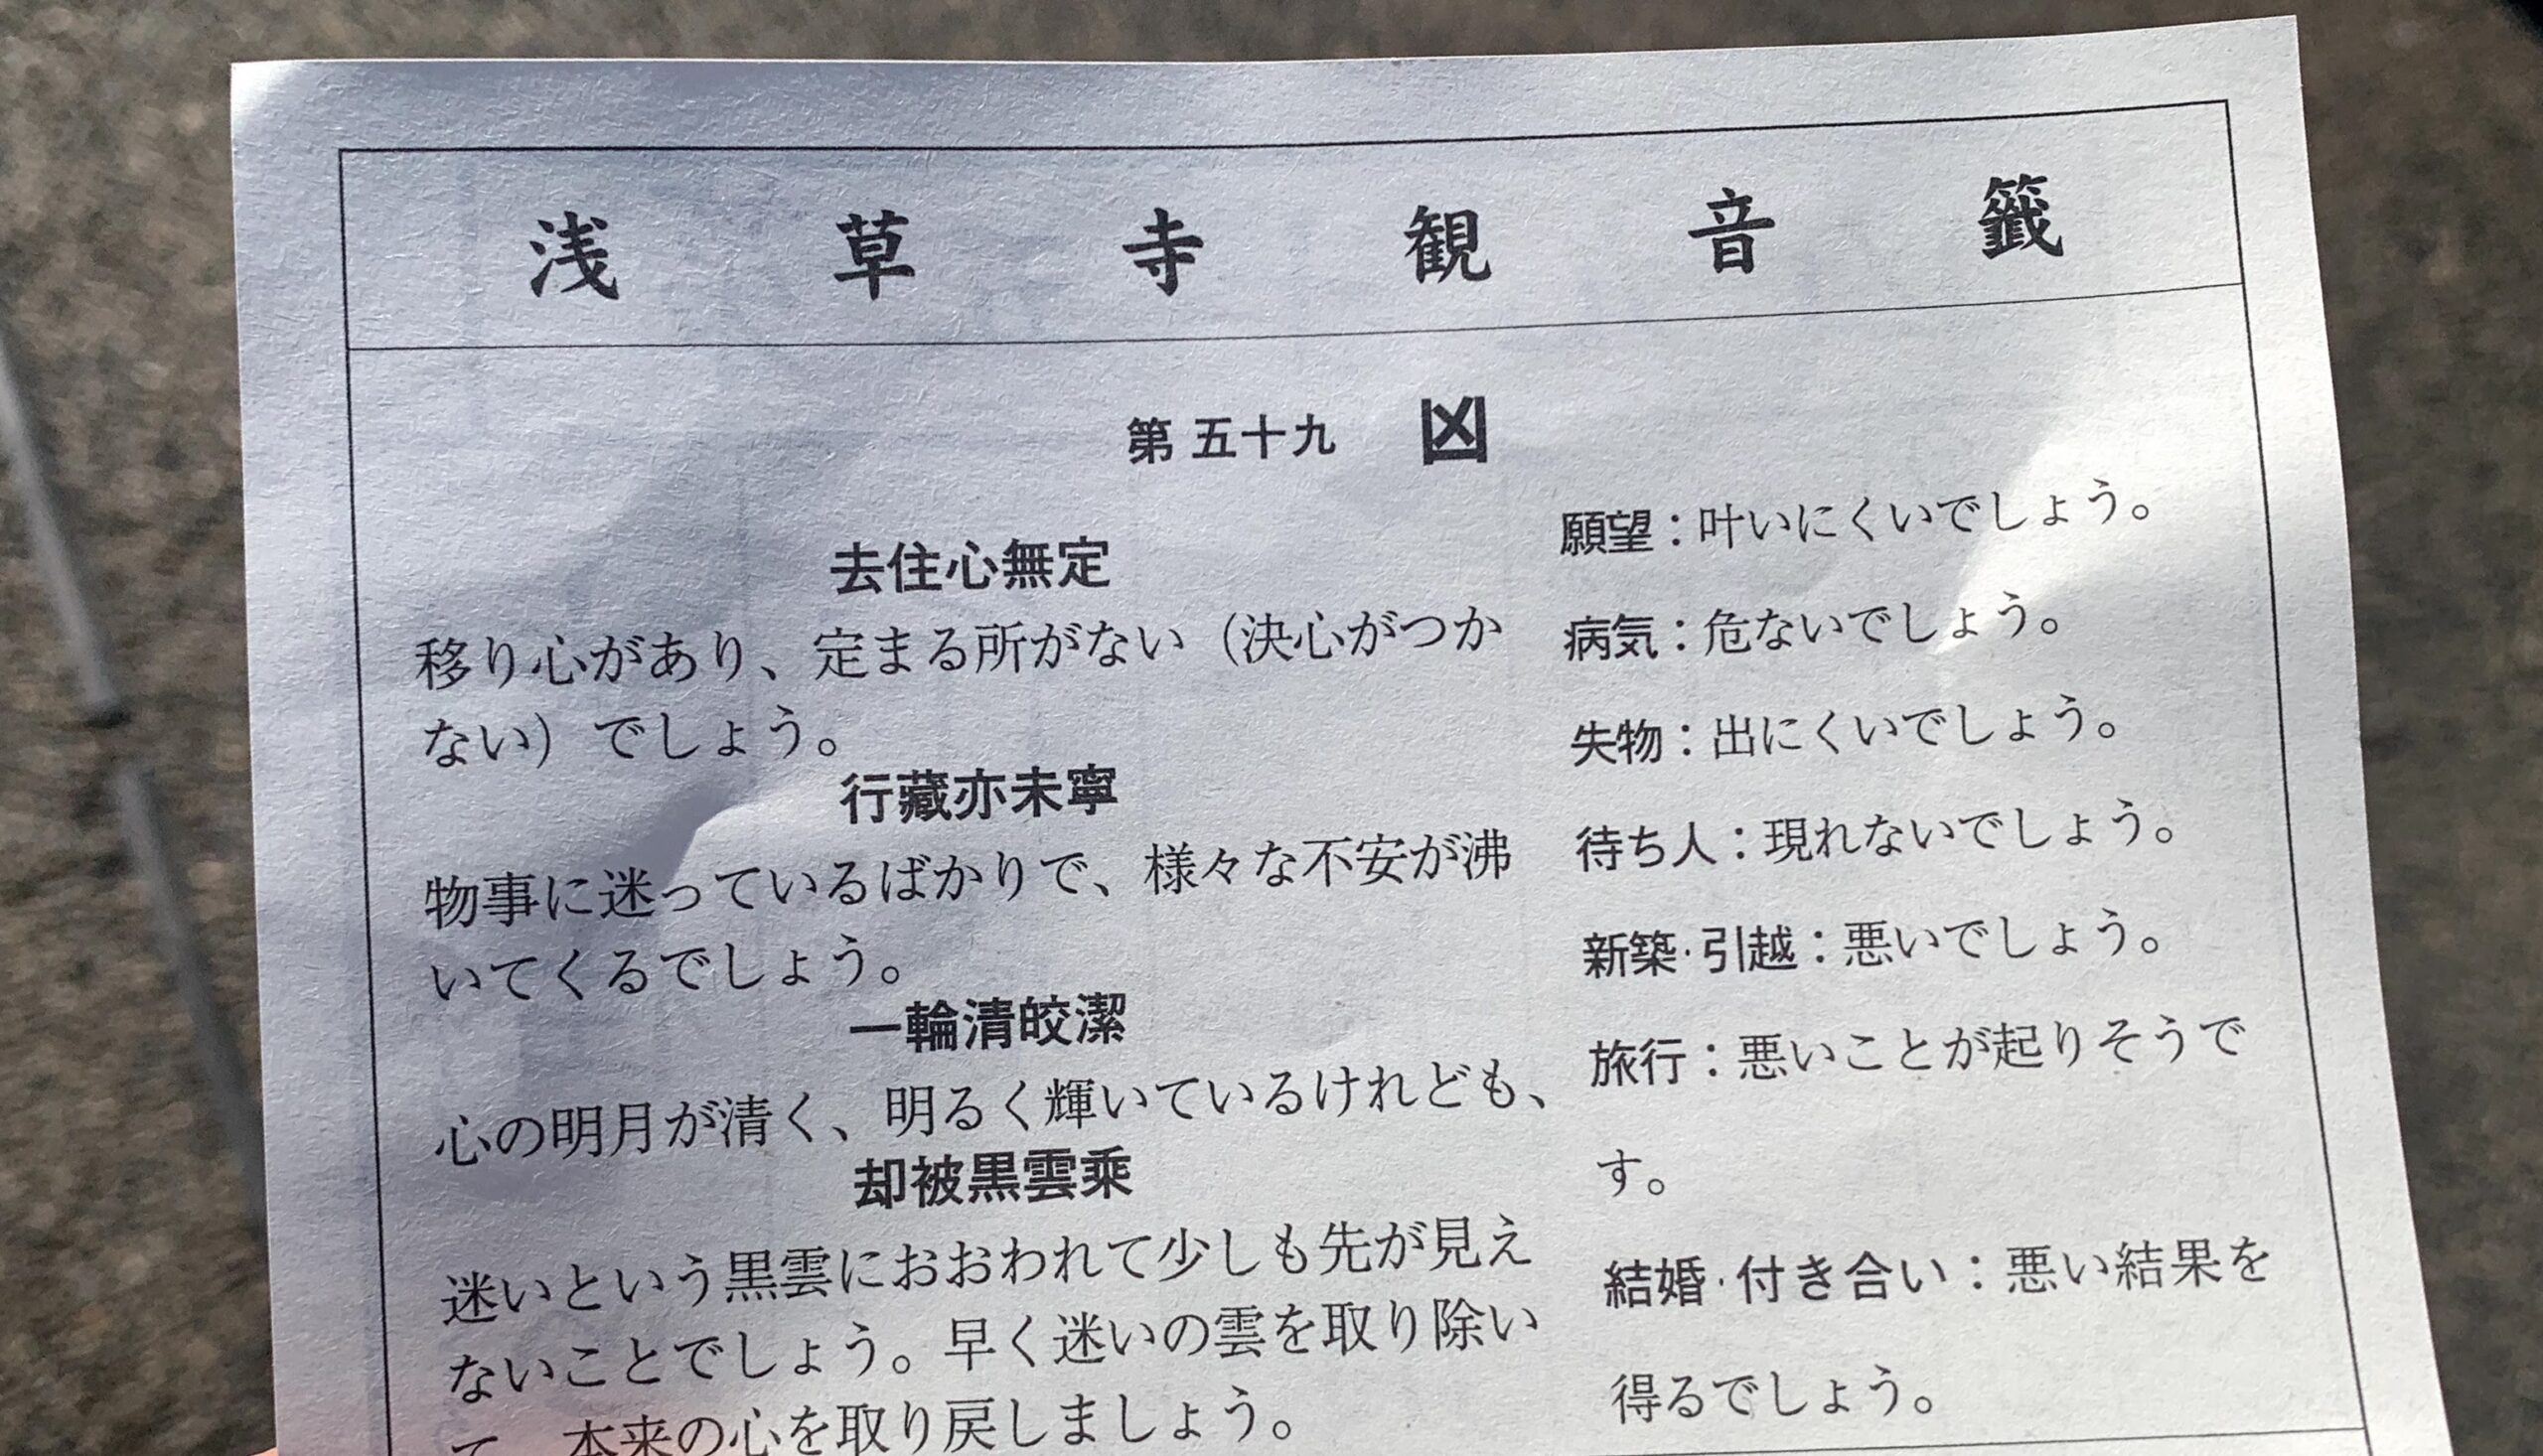 浅草寺観音籤
第五十九 凶
去住心無定
移り心があり、定まる所がない（決心がつか
ない）でしょう。
行藏亦未寧
物事に迷っているばかりで、様々な不安が沸
いてくるでしょう。
一輪清皎潔
心の明月が清く、明るく輝いているけれども、
却被黒雲乗
迷いという黒雲におおわれて少しも先が見え
ないことでしょう。早く迷いの雲を取り除い
て、本来の心を取り戻しましょう。
願望：叶いにくいでしょう。
病気：危ないでしょう。
失物：出にくいでしょう。
待ち人：現れないでしょう。
新築·引越：悪いでしょう。
旅行：悪いことが起りそうで
す。
結婚·付き合い：悪い結果を
得るでしょう。